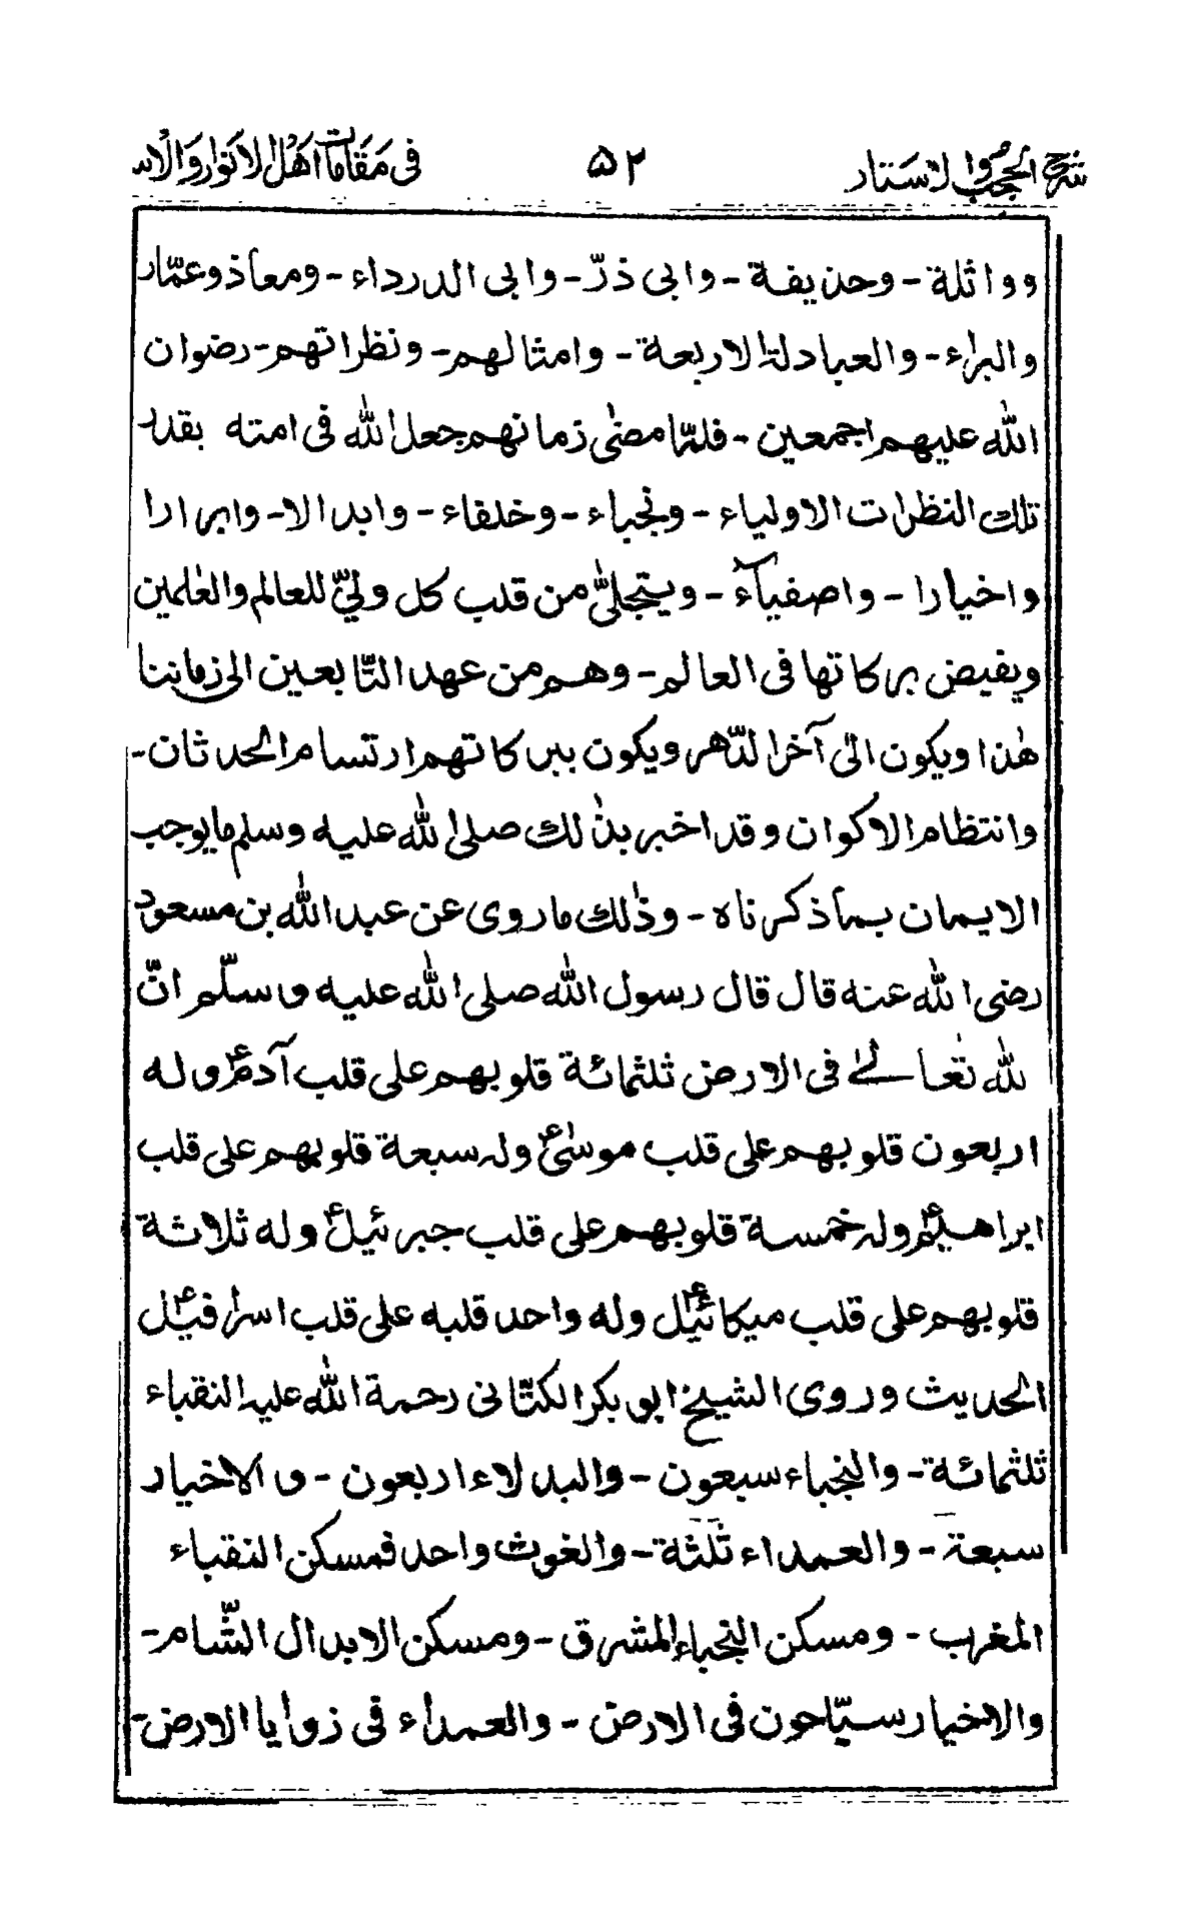 شرح الحجب والاستار ۵۲ فی مَقَامَات اَهْلِ الاَنوَار وَالاس
وواثلة - وحذیفة - وابی ذرّ - وابی الدرداء - ومعاذ وعمّار
والبراء - والعبادلة الاربعة - وامثالهم - ونظراتهم - رضوان
الله علیهم اجمعین - فلمّا مضیٰ زمانهم جعل الله فی امته بقدر
تلك النظرات الاولیاء - ونجباء - وخلفاء - وابدالا - وابرارا
واخیارا - واصفیآء - ویتجلیّٰ من قلب کل ولیّ للعالم والعٰلمین
ویفیض برکاتها فی العالم - وهم من عهد التّابعین الی زماننا
هٰذا ویکون الیٰ آخر الدّهر ویکون ببرکاتهم ارتسام الحدثان -
وانتظام الاکوان وقد اخبر بذٰلك صلی الله علیه وسلم ما یوجب
الایمان بما ذکرناه - وذٰلك ما روی عن عبد الله بن مسعود
رضی الله عنه قال قال رسول الله صلی الله علیه وسلّم انّ
لله تعٰالےٰ فی الارض ثلثمائة قلوبهم علی قلب آدمؑ وله
اربعون قلوبهم علی قلب موسیٰؑ وله سبعة قلوبهم علی قلب
ابراهیمؑ وله خمسة قلوبهم علی قلب جبرئیلؑ وله ثلاثة
قلوبهم علی قلب میکائیلؑ وله واحد قلبه علی قلب اسرافیلؑ
الحدیث وروی الشیخ ابو بکر الکتّانی رحمة الله علیه النقباء
ثلثمائة - والنجباء سبعون - والبدلاء اربعون - والاخیار
سبعة - والعمداء ثلٰثة - والغوث واحد فمسکن النقباء
المغرب - ومسکن النجباء المشرق - ومسکن الابدال الشّام -
والاخیار سیّاحون فی الارض - والعمداء فی زوایا الارض -